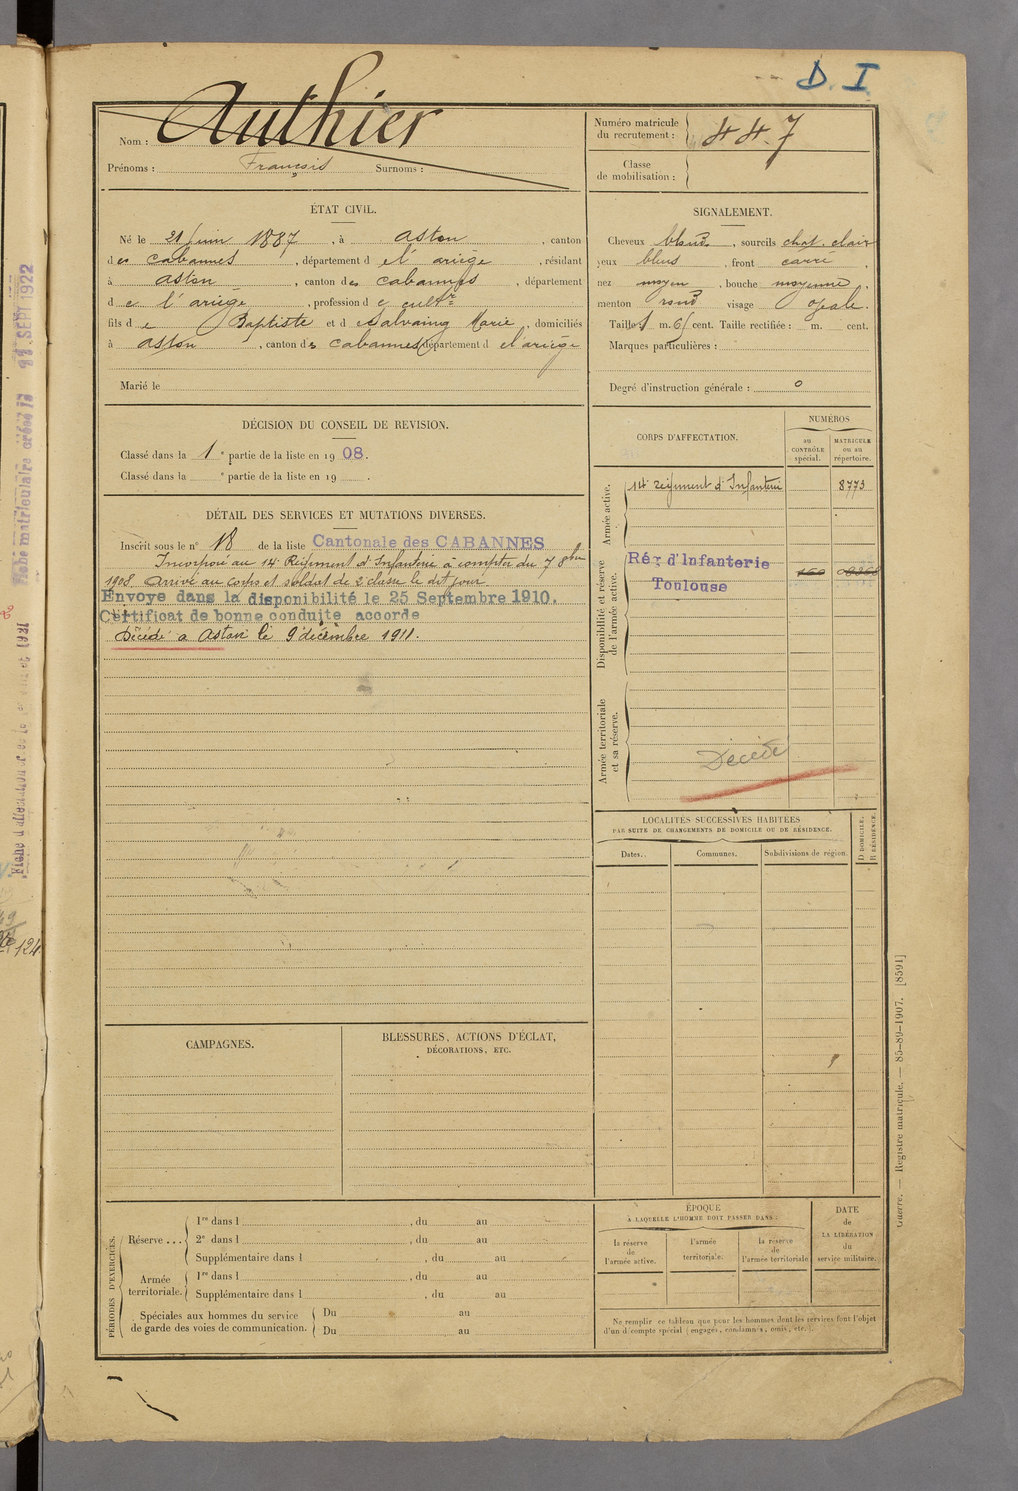 D. I
Nom : Authier
Prénoms : François Surnoms :
Numéro matricule
du recrutement : 447
Classe
de mobilisation :
ÉTAT CIVIL.
Né le 21 juin 1887, à Aston, canton
des Cabannes, département de l'ariège, résidant
à Aston, canton des Cabannes, département
de l'ariège, profession de cultr
fils de Baptiste et de Salvaing Marie, domiciliés
à Aston, canton des Cabannes département de l'ariège
Marié le
SIGNALEMENT.
Cheveux blonds, sourcils chat. clair
yeux bleus front carré,
nez moyen, bouche moyenne,
menton rond visage ovale.
Taille 1 m. 61 cent. Taille rectifiée : m. cent.
Marques particulières :
Degré d'instruction générale : 0
DÉCISION DU CONSEIL DE REVISION.
Classé dans la 1e partie de la liste en 1908.
Classé dans la e partie de la liste en 19 .
DÉTAIL DES SERVICES ET MUTATIONS DIVERSES.
Inscrit sous le n° 18 de la liste Cantonale des CABANNES
Incorporé au 14e Régiment d'Infanterie à compter du 7 8bre
1908. Arrivé au corps et soldat de 2e classe le dit jour
Envoye dans la disponibilité le 25 Septembre 1910.
Certificat de bonne conduite accorde
Décédé à Aston le 9 décembre 1911.
CORPS D'AFFECTATION.
NUMÉROS
au
CONTRÔLE
spécial.
MATRICULE
ou au
répertoire.
Armée active.
14e régiment d'Infanterie 8773
Disponibilité et réserve
de l'armée active.
Rég d'Infanterie
Toulouse
Armée territoriale
et sa réserve.
Décédé
LOCALITÉS SUCCESSIVES HABITÉES
PAR SUITE DE CHANGEMENTS DE DOMICILE OU DE RÉSIDENCE.
D DOMICILE.
R RÉSIDENCE.
Dates. Communes. Subdivisions de région.
CAMPAGNES.
BLESSURES, ACTIONS D'ÉCLAT,
DÉCORATIONS, ETC.
PÉRIODES D'EXERCICES.
Réserve ...
1re dans l , du au
2e dans l , du au
Supplémentaire dans l , du au
Armée
territoriale.
1re dans l , du au
Supplémentaire dans l , du au
Spéciales aux hommes du service
de garde des voies de communication.
Du au
Du au
ÉPOQUE
À LAQUELLE L'HOMME DOIT PASSER DANS :
la réserve
de
l'armée active.
l'armée
territoriale.
la réserve
de
l'armée territoriale
DATE
de
LA LIBÉRATION
du
service militaire.
Ne remplir ce tableau que pour les hommes dont les services font l'objet
d'un décompte spécial (engagés, condamnés, omis, etc.).
Guerre. — Registre matricule. — 85-89-1907. [8591]
Fiche matriculaire créée le SEPT 1922
124